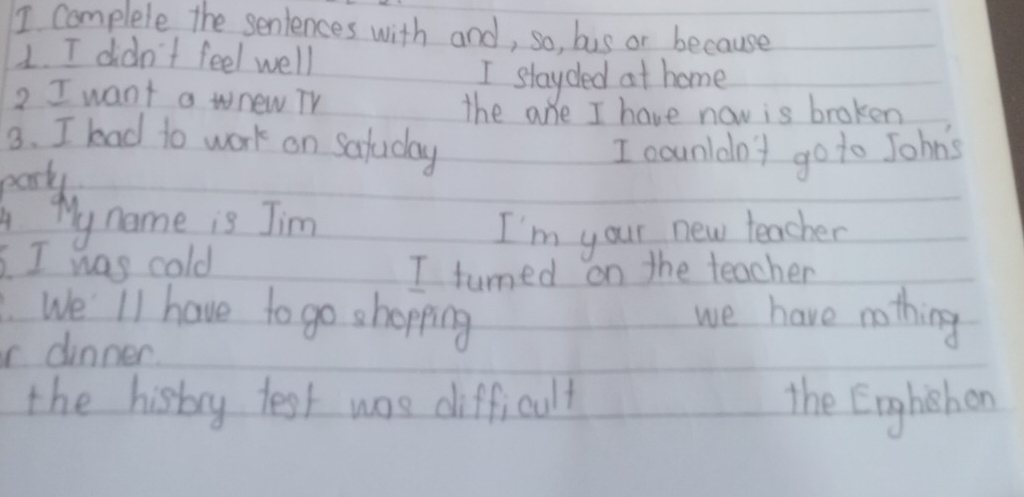 I complele the sentences with and, so, bus or because
1. I didn't feel well I stayded at home
2 I want a wnew TV the one I have now is broken
3. I had to work on satuday I counldn't go to John's
party
4. My name is Jim I'm your new teacher
5. I was cold I turned on the teacher
We'll have to go shopping we have nothing
r dinner.
the history test was difficult the Enghish on